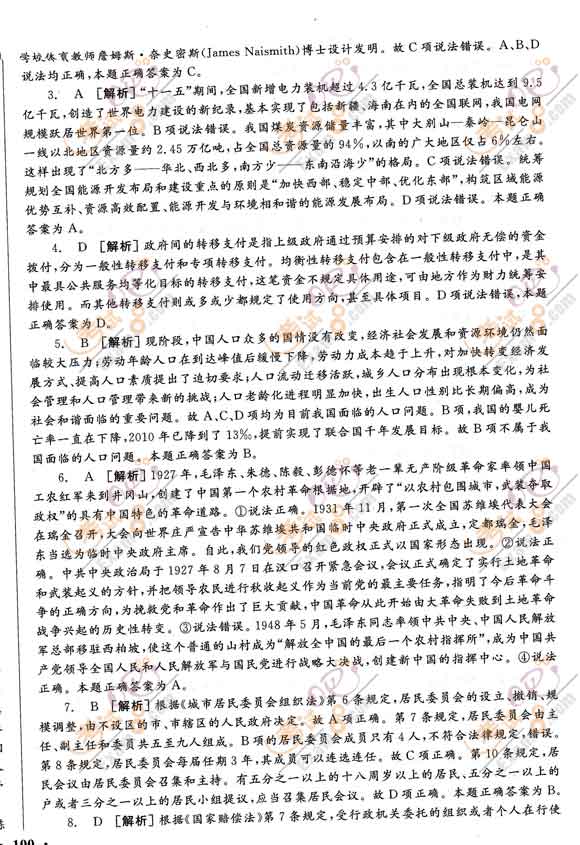 学校体育教师詹姆斯·奈史密斯(James Naismith)博士设计发明。故C项说法错误。A、B、D
说法均正确,本题正确答案为C。
3. A [解析]“十一五”期间,全国新增电力装机超过4.3亿千瓦,全国总装机达到9.5
亿千瓦,创造了世界电力建设的新纪录,基本实现了包括新疆、海南在内的全国联网,我国电网
规模跃居世界第一位。B项说法错误。我国煤炭资源储量丰富,其中大别山—秦岭—昆仑山
一线以北地区资源量约2.45万亿吨,占全国总资源量的94%,以南的广大地区仅占6%左右。
这样出现了“北方多——华北、西北多,南方少——东南沿海少”的格局。C项说法错误。统筹
规划全国能源开发布局和建设重点的原则是“加快西部、稳定中部、优化东部”,构筑区域能源
优势互补、资源高效配置、能源开发与环境相和谐的能源发展布局。D项说法错误。本题正确
答案为A。
4. D [解析]政府间的转移支付是指上级政府通过预算安排的对下级政府无偿的资金
拨付,分为一般性转移支付和专项转移支付。均衡性转移支付包含在一般性转移支付中,是其
中最具公共服务均等化目标的转移支付,这笔资金不规定具体用途,可由地方作为财力统筹安
排使用。而其他转移支付则或多或少都规定了使用方向,甚至具体项目。D项说法错误,本题
正确答案为D。
5. B [解析]现阶段,中国人口众多的国情没有改变,经济社会发展和资源环境仍然面
临较大压力;劳动年龄人口在到达峰值后缓慢下降,劳动力成本趋于上升,对加快转变经济发
展方式、提高人口素质提出了迫切要求;人口流动迁移活跃,城乡人口分布出现根本变化,为社
会管理和人口管理带来新的挑战;人口老龄化进程明显加快,出生人口性别比长期偏高,成为
社会和谐面临的重要问题。故A、C、D项均为目前我国面临的人口问题。B项,我国的婴儿死
亡率一直在下降,2010年已降到了13‰,提前实现了联合国千年发展目标。故B项不属于我
国面临的人口问题。本题正确答案为B。
6. A [解析]1927年,毛泽东、朱德、陈毅、彭德怀等老一辈无产阶级革命家率领中国
工农红军来到井冈山,创建了中国第一个农村革命根据地,开辟了“以农村包围城市,武装夺取
政权”的具有中国特色的革命道路。①说法正确。1931年11月,第一次全国苏维埃代表大会
在瑞金召开,大会向世界庄严宣告中华苏维埃共和国临时中央政府正式成立,定都瑞金,毛泽
东当选为临时中央政府主席。自此,我们党领导的红色政权正式以国家形态出现。②说法正
确。中共中央政治局于1927年8月7日在汉口召开紧急会议,会议正式确定了实行土地革命
和武装起义的方针,并把领导农民进行秋收起义作为当前党的最主要任务,指明了今后革命斗
争的正确方向,为挽救党和革命作出了巨大贡献,中国革命从此开始由大革命失败到土地革命
战争兴起的历史性转变。③说法错误。1948年5月,毛泽东同志率领中共中央、中国人民解放
军总部移驻西柏坡,使这个普通的山村成为“解放全中国的最后一个农村指挥所”,成为中国共
产党领导全国人民和人民解放军与国民党进行战略大决战,创建新中国的指挥中心。④说法
正确。本题正确答案为A。
7. B [解析]根据《城市居民委员会组织法》第6条规定,居民委员会的设立、撤销、规
模调整,由不设区的市、市辖区的人民政府决定。故A项正确。第7条规定,居民委员会由主
任、副主任和委员共五至九人组成。B项的居民委员会成员只有4人,不符合法律规定,错误。
第8条规定,居民委员会每届任期3年,其成员可以连选连任。故C项正确。第10条规定,居
民会议由居民委员会召集和主持。有五分之一以上的十八周岁以上的居民、五分之一以上的
户或者三分之一以上的居民小组提议,应当召集居民会议。故D项正确。本题正确答案为B。
8. D [解析]根据《国家赔偿法》第7条规定,受行政机关委托的组织或者个人在行使